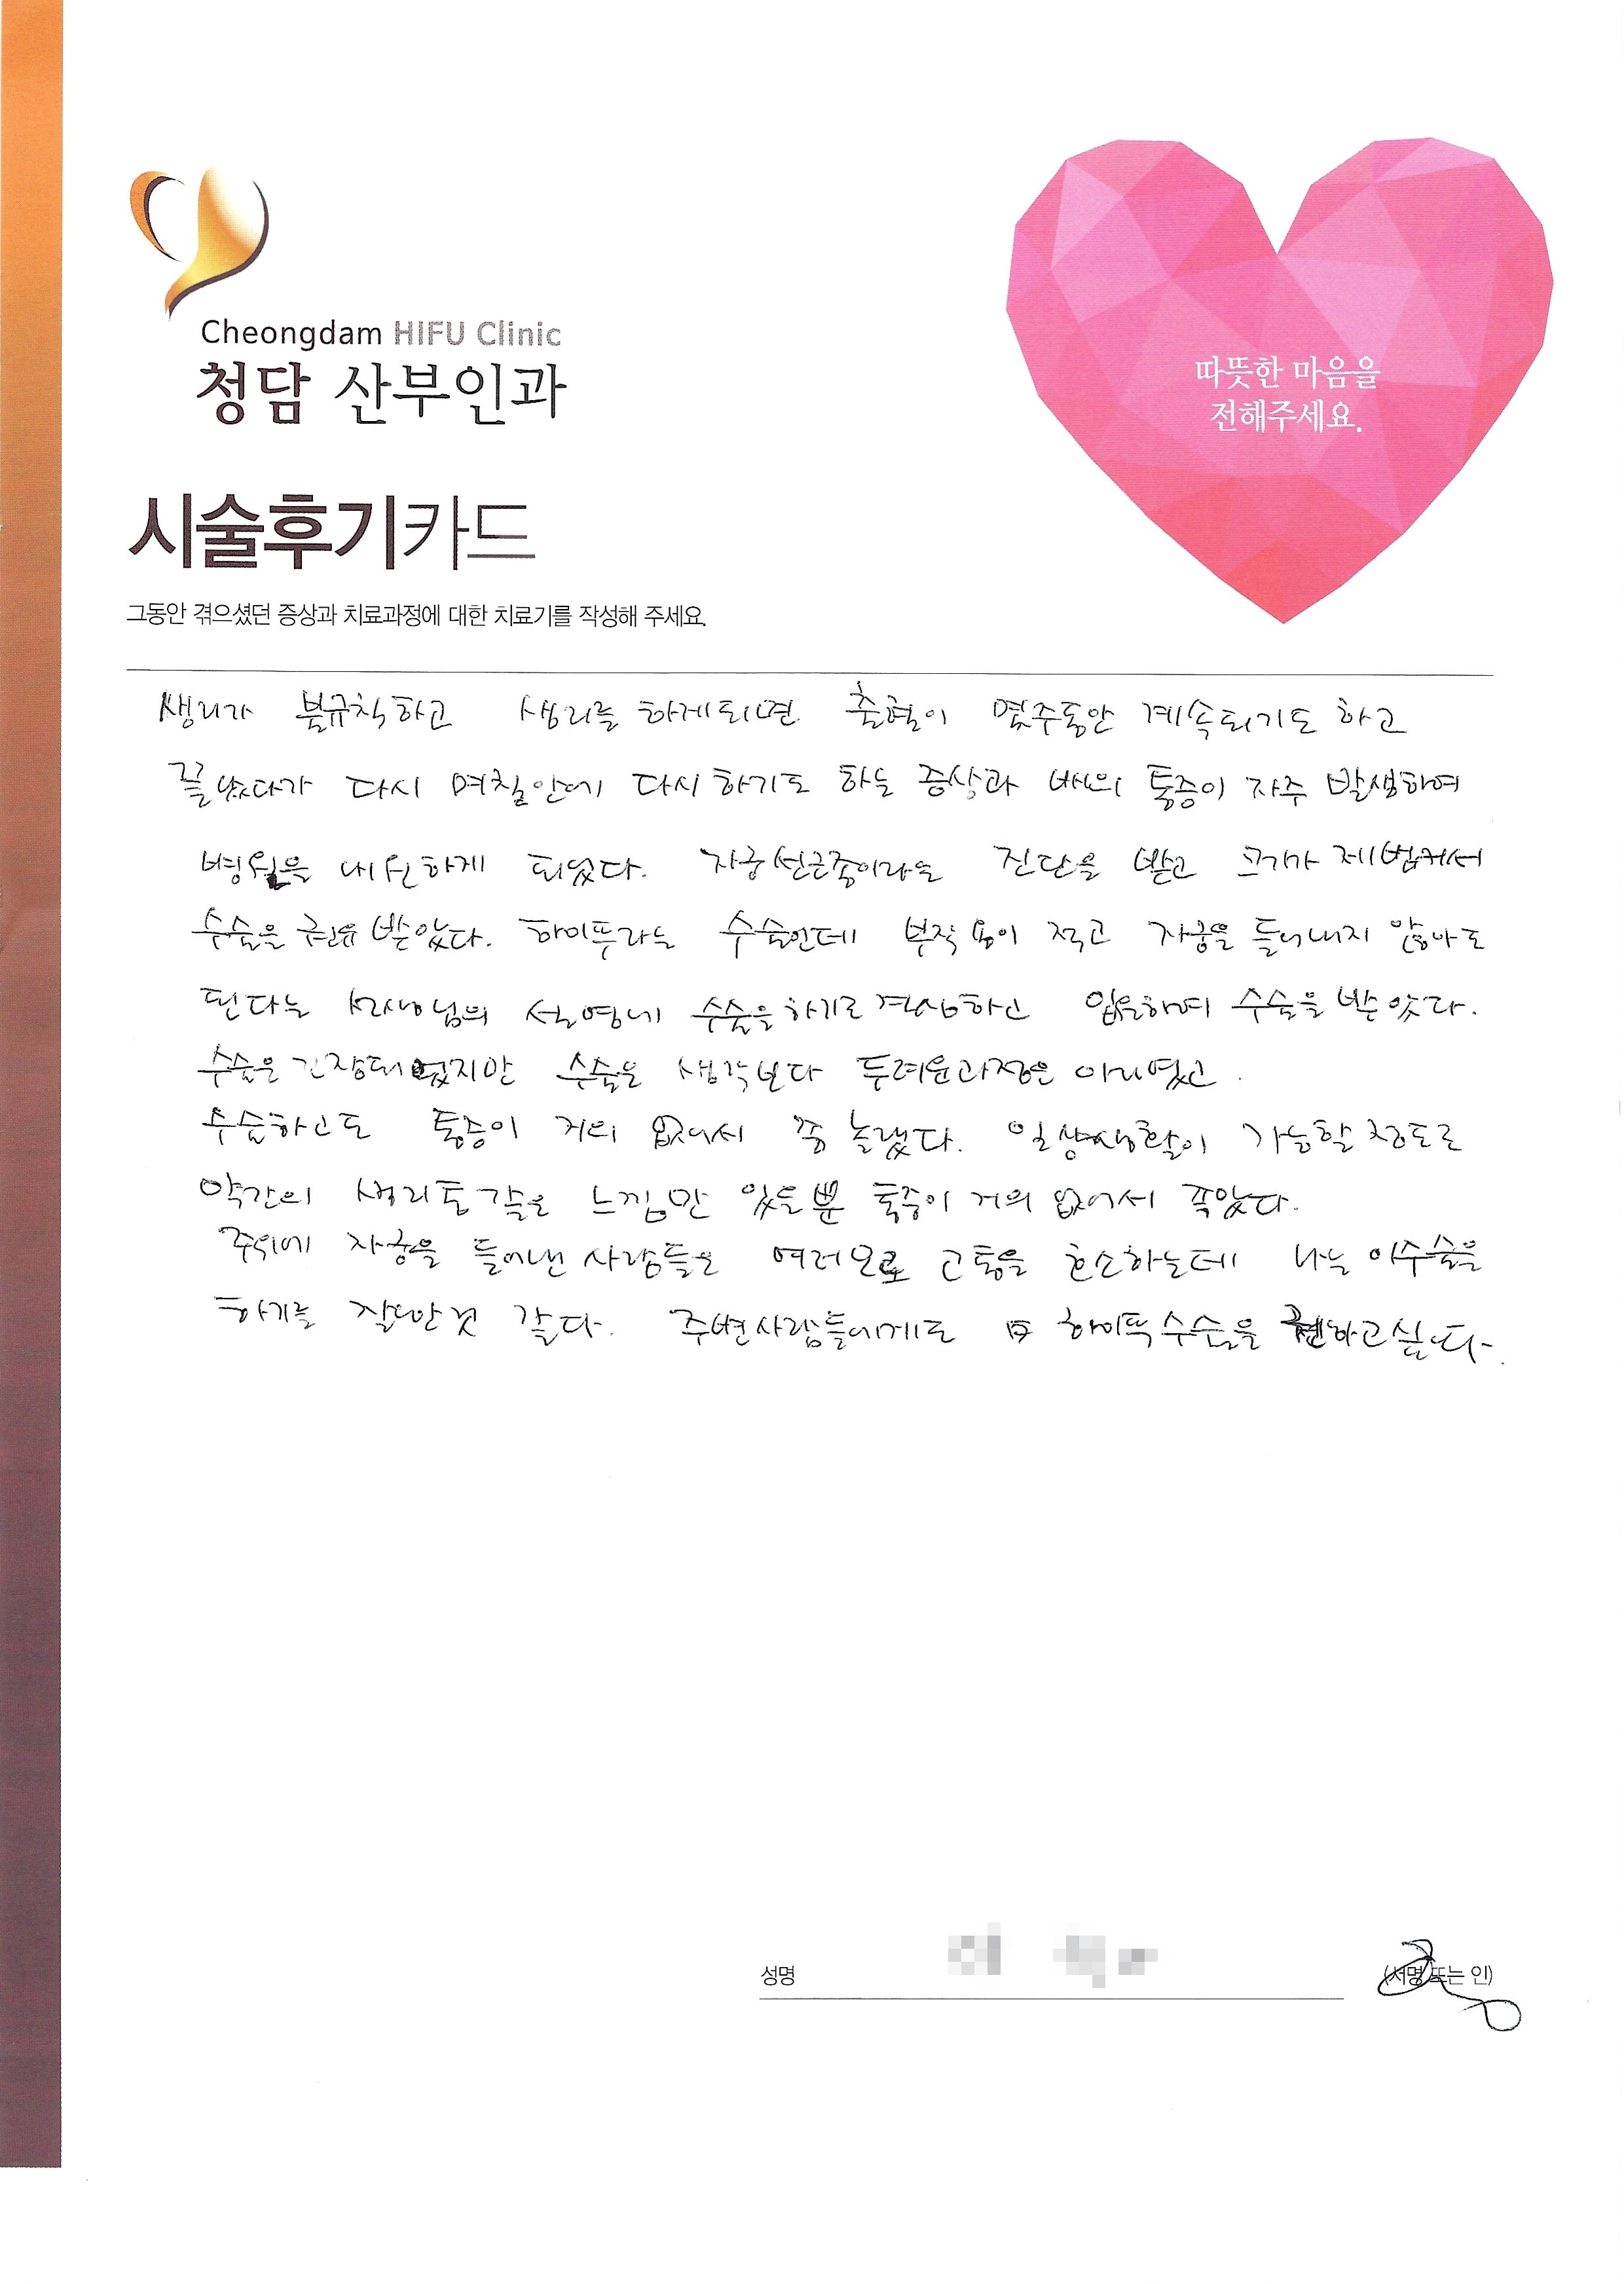 Cheongdam HIFU Clinic
청담 산부인과
따뜻한 마음을
전해주세요.
시술후기카드
그동안 겪으셨던 증상과 치료과정에 대한 치료기를 작성해 주세요.
생리가 불규칙하고 생리를 하게되면 출혈이 몇주동안 계속되기도 하고
끝났다가 다시 며칠안에 다시 하기도 하는 증상과 배의 통증이 자주 발생하여
병원을 내원하게 되었다. 자궁선근종이라는 진단을 받고 크기가 제법커서
수술을 권유 받았다. 하이푸라는 수술인데 부작용이 적고 자궁을 들어내지 않아도
된다는 선생님의 설명에 수술을 하기로 결심하고 입원하여 수술을 받았다.
수술은 긴장되었지만 수술은 생각보다 두려운과정은 아니였고
수술하고도 통증이 거의 없어서 쫌 놀랬다. 일상생활이 가능할 정도로
약간의 생리통 같은 느낌만 있을뿐 통증이 거의 없어서 좋았다.
주위에 자궁을 들어낸 사람들은 여러모로 고통을 호소하는데 나는 이수술을
하기를 잘한것 같다. 주변사람들에게도 하이푸수술을 권하고싶다.
성명 (서명 또는 인)